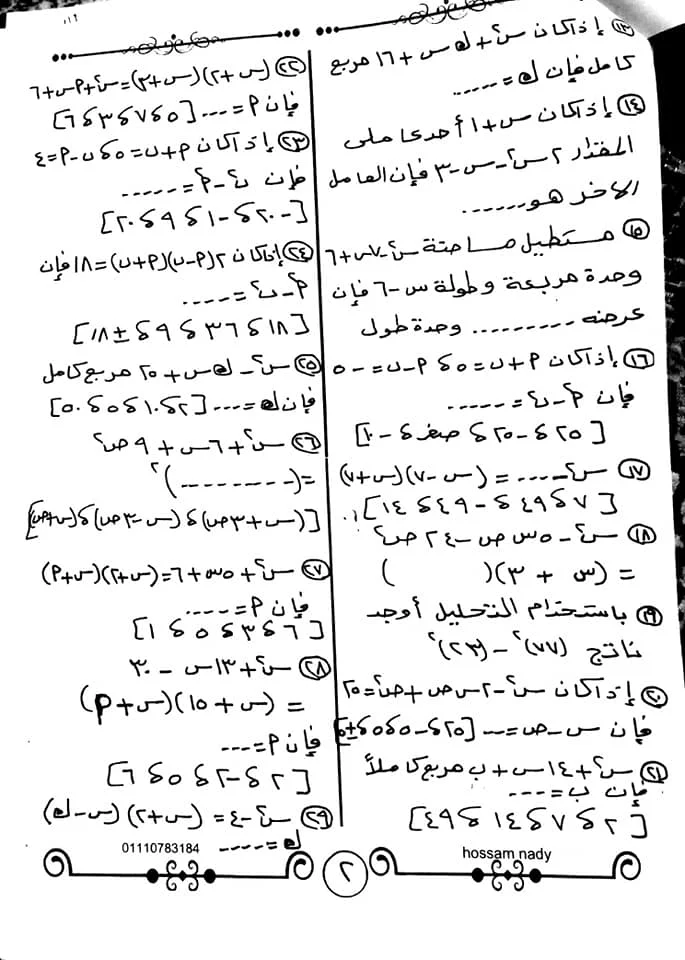 ١٣ إذا كان س٢ + ك س + ١٦ مربع
كامل فإن ك = .....
١٤ إذا كان س + ١ أحدى عاملى
المقدار ٢ س٢ - س - ٣ فإن العامل
الآخر هو .......
١٥ مستطيل مساحتة س٢ - ٧س + ٦
وحدة مربعة وطولة س - ٦ فإن
عرضه ......... وحدة طول
١٦ إذا كان م + ن = ٥ ، م - ن = - ٥
فإن م٢ - ن٢ = ......
[٢٥ ، -٢٥ ، صفر ، -١٠]
١٧ س٢ ..... = (س - ٧)(س + ٧)
[٧ ، ٤٩ ، -٤٩ ، ١٤]
١٨ س٢ - ٥ س ص - ٢٤ ص٢
= (س + ٣)( )
١٩ باستخدام التحليل أوجد
ناتج (٧٧)٢ - (٢٣)٢
٢٠ إذا كان س٢ - ٢ س ص + ص٢ = ٢٥
فإن س - ص = ---- [٢٥ ، -٥ ، ٥ ، ±٥]
٢١ س٢ + ١٤ س + ب مربع كاملاً
فإن ب = ----
[٢ ، ٧ ، ١٤ ، ٤٩]
٢٢ (س + ٢)(س + ٣) = س٢ + م س + ٦
فإن م = .... [٥ ، ٧ ، ٣ ، ٦]
٢٣ إذا كان م + ن = ٥ ، ن - م = ٤
فإن ن٢ - م٢ = .....
[-٢٠ ، -١ ، ٩ ، ٢٠]
٢٤ إذا كان ٢(م - ن)(م + ن) = ١٨ فإن
م٢ - ن٢ = ....
[١٨ ، ٣٦ ، ٩ ، ±١٨]
٢٥ س٢ - ك س + ٢٥ مربع كامل
فإن ك = .... [٢ ، ١٠ ، ٥ ، ٥٠]
٢٦ س٢ + ٦ س + ٩ ص٢
= (- - - - - - - -)٢
[(س + ٣ ص) ، (س - ٣ ص) ، (س + ص)]
٢٧ س٢ + ٥ س + ٦ = (س + ٢)(س + م)
فإن م = ....
[٦ ، ٣ ، ٥ ، ١]
٢٨ س٢ + ١٣ س - ٣٠
= (س + ١٥)(س + م)
فإن م = ----
[٢ ، -٢ ، ٥ ، ٦]
٢٩ س٢ - ٤ = (س + ٢)(س - ك)
ك = ----
01110783184
٢
hossam nady